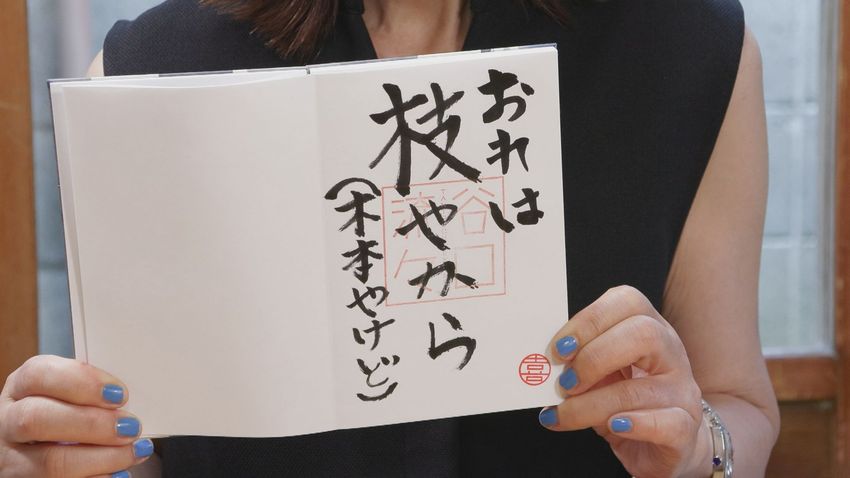 おれは
枝やから
(木本やけど)
谷口
喜